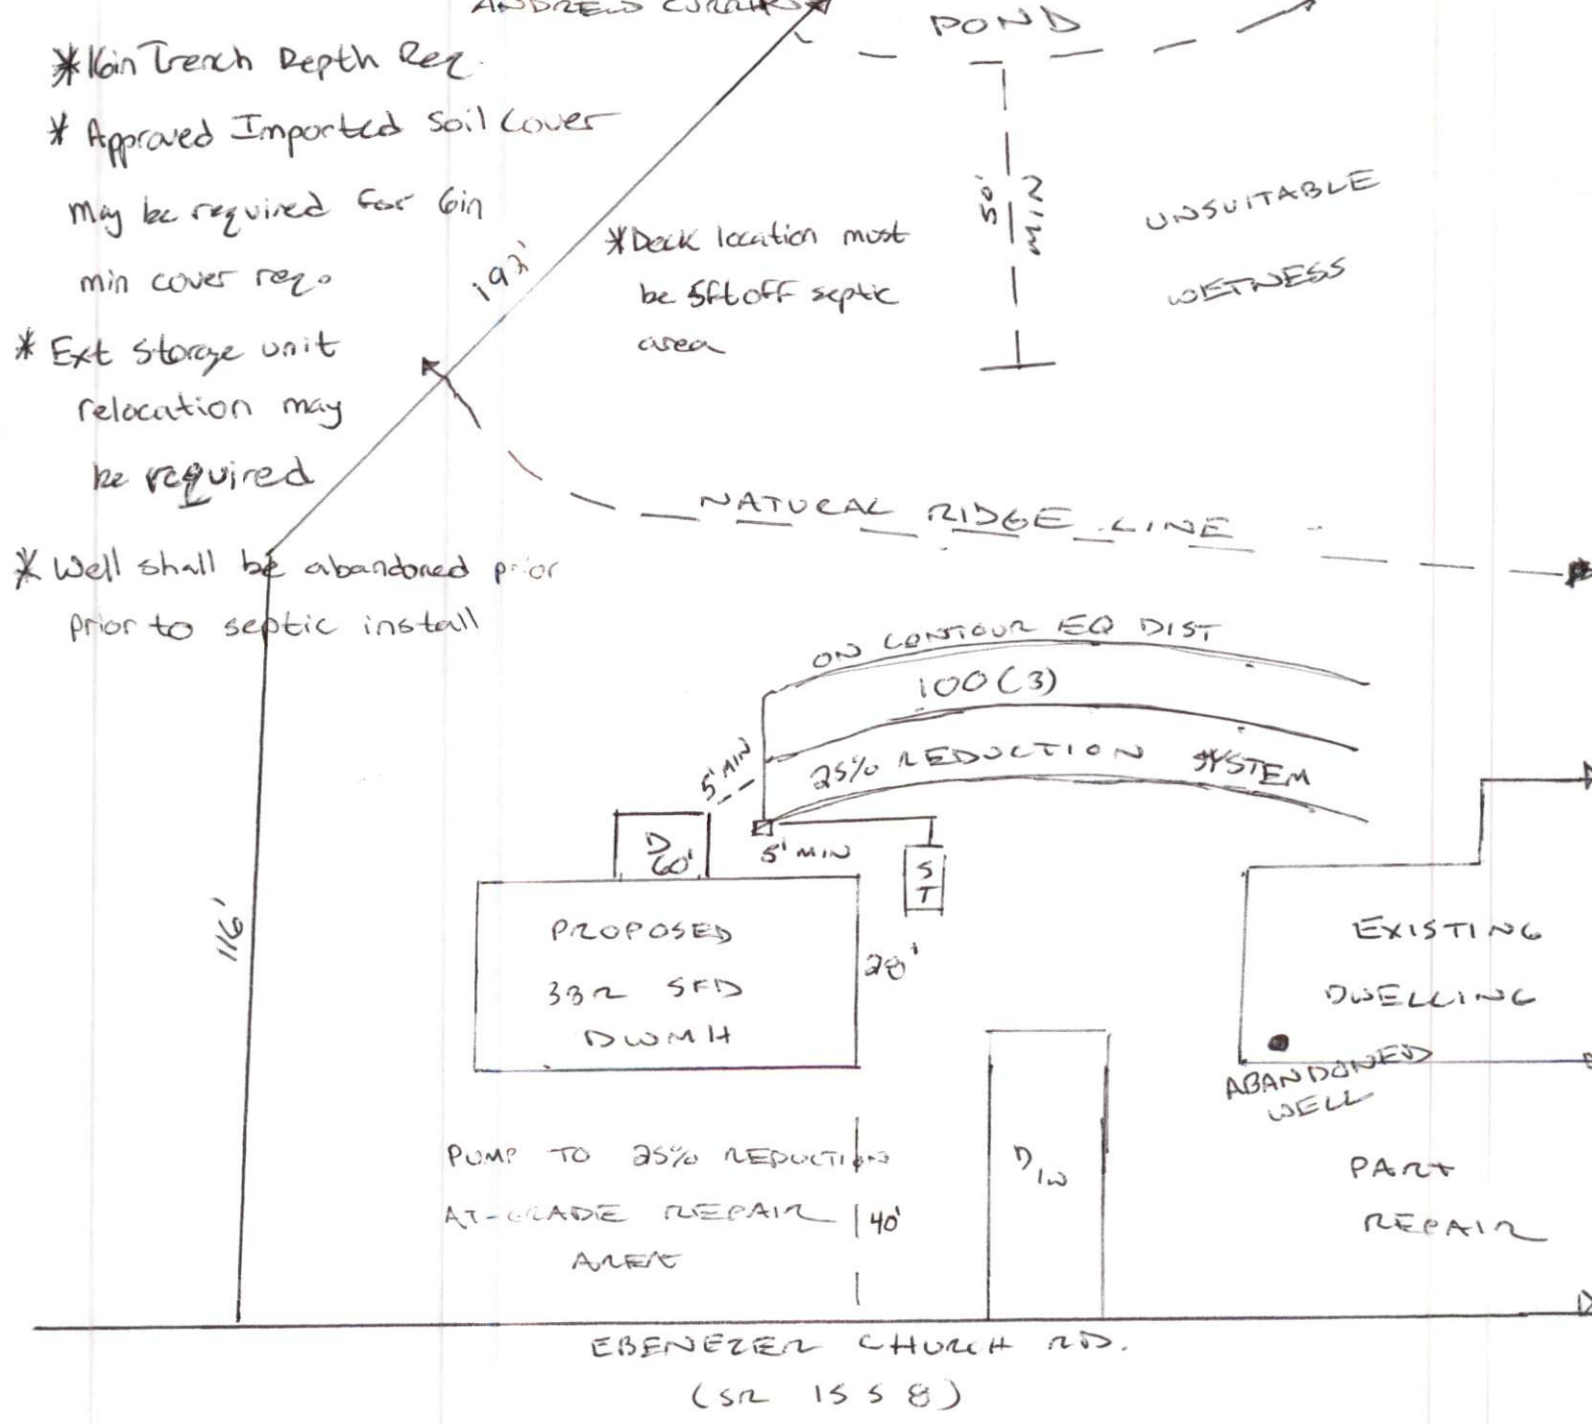 ANDREW
POND
*16in Trench Depth Req.
* Approved Imported Soil Cover
may be required for 6in
min cover req.
* Ext storage unit
relocation may
be required
* Well shall be abandoned prior
prior to septic install
192'
*Deck location must
be 5ft off septic
area
50'
MIN
UNSUITABLE
WETNESS
NATURAL RIDGE LINE
ON CONTOUR EQ DIST
100(3)
25% REDUCTION SYSTEM
5' MIN
5' MIN
D
60'
S
T
116'
PROPOSED
3BR SFD
DWMH
28'
EXISTING
DWELLING
ABANDONED
WELL
PUMP TO 25% REDUCTION
AT-GRADE REPAIR
AREA
40'
D/W
PART
REPAIR
EBENEZER CHURCH RD.
(SR 1558)